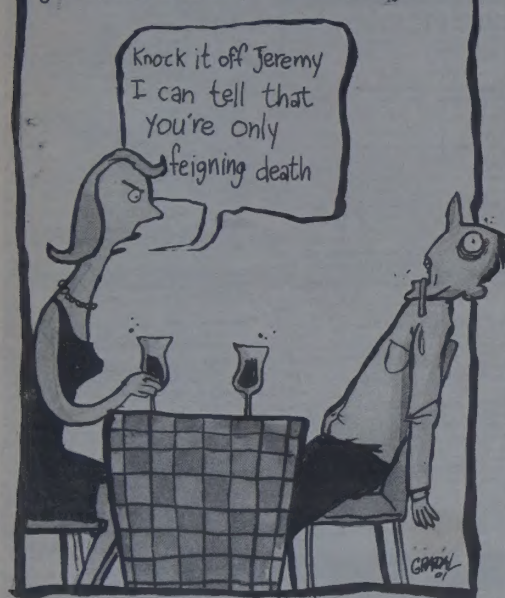 Knock it off Jeremy
I can tell that
you're only
feigning death